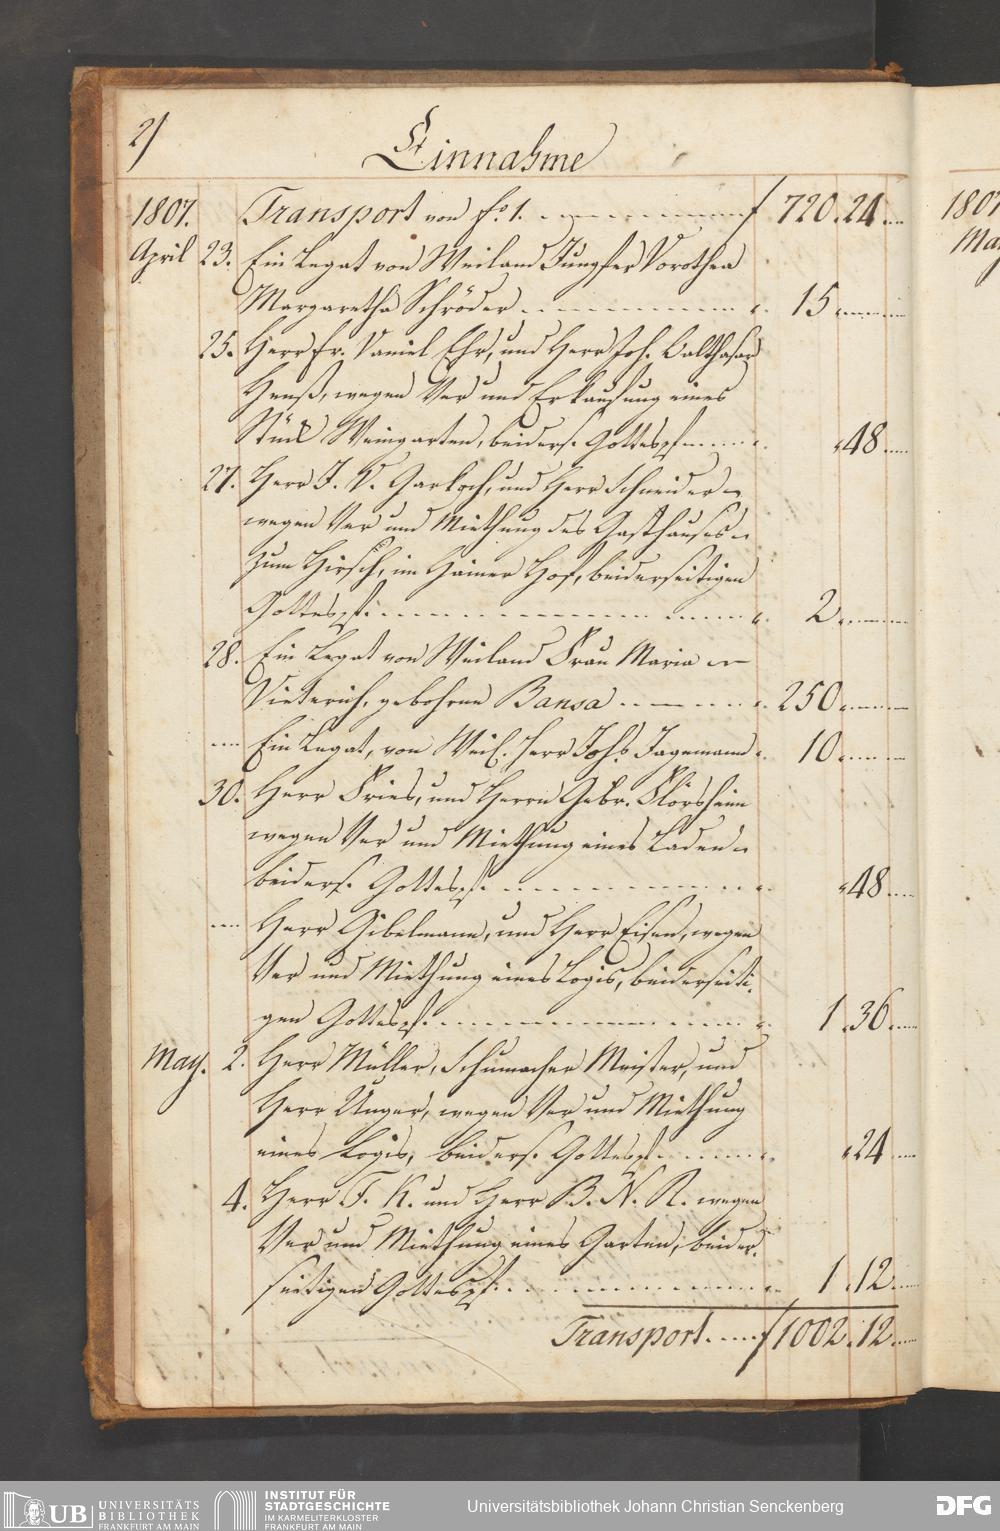 2/
Einnahme
1807. Transport von fo. 1. f 720. 24.
April 23. Ein Legat von Weiland Jungfer Dorothea
Margaretha Schröder " 15
25. Herr Fr. Daniel Ehrs, und Herr Joh. Balthasar
Henß, wegen Ver und Erkaufung eines
Stück Weingarten, beiders. Gottespf. " " 48
27. Herr J. V. Garkoch, und Herr Schneider
wegen Ver und Miethung des Gasthauses
zum Hirsch, im Hainer Hof, beiderseitigen
Gottespf. " 2
28. Ein Legat von Weiland Frau Maria
Dieterich, gebohrne Bansa " 250
Ein Legat, von Weil. Herr Johs. Jagemann " 10
30. Herr Fries, und Herrn Gebr. Flörsheim
wegen Ver und Miethung eines Laden
beiders. Gottespf. " " 48
Herr Gibelmann, und Herr Eisen, wegen
Ver und Miethung eines Logis, beiderseiti-
gen Gottespf. " 1. 36
May. 2. Herr Müller, Schumacher Meister, und
Herr Unger, wegen Ver und Miethung
eines Logis, beiders. Gottespf. " " 24
4. Herr F. K. und Herr B. N. R. wegen
Ver und Miethung eines Garten, beider-
seitigen Gottespf. " 1. 12
Transport f 1002. 12
1807
May
UB UNIVERSITÄTS
BIBLIOTHEK
FRANKFURT AM MAIN
INSTITUT FÜR
STADTGESCHICHTE
IM KARMELITERKLOSTER
FRANKFURT AM MAIN
Universitätsbibliothek Johann Christian Senckenberg
DFG